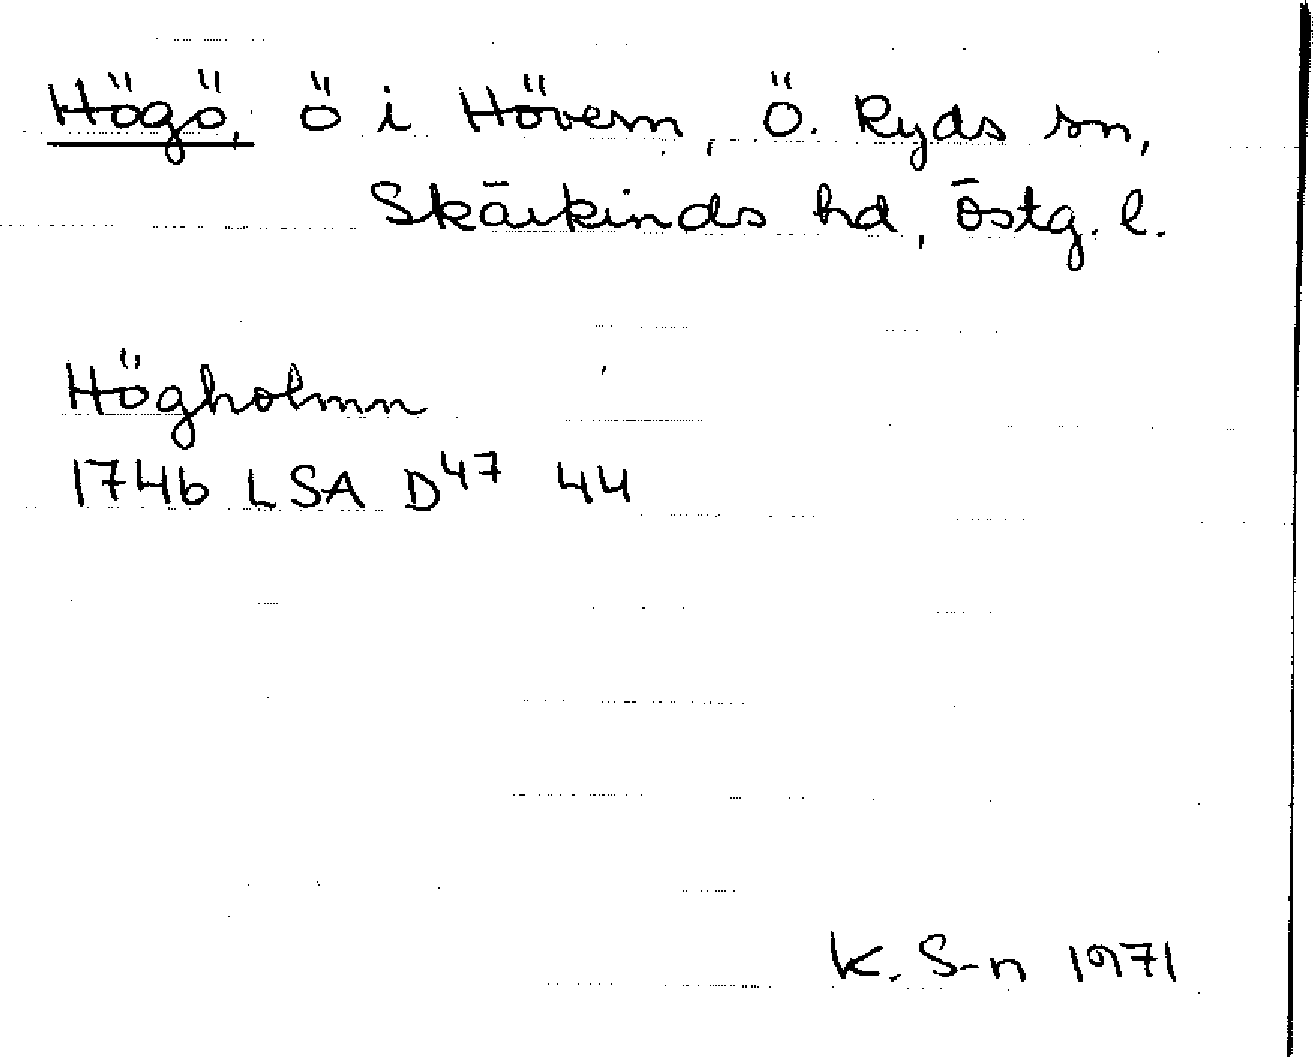 Högö, ö i Hövern, Ö. Ryds sn,
Skärkinds hd, Östg. l.
Högholmn
1746 LSA D47 44
K. S-n 1971